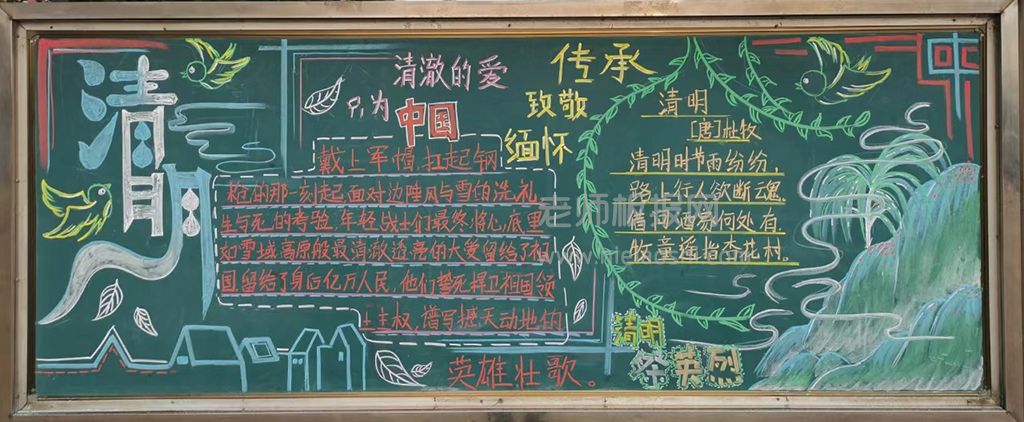 清明
清澈的爱
只为
中国
戴上军帽 扛起钢
枪的那一刻起,面对边陲风与雪的洗礼
生与死的考验,年轻战士们最终将心底里
如雪域高原般最清澈透亮的大爱留给了祖
国,留给了身后亿万人民,他们誓死捍卫祖国领
土主权,谱写撼天动地的
英雄壮歌。
传承
致敬
缅怀
清明
[唐]杜牧
清明时节雨纷纷,
路上行人欲断魂。
借问酒家何处有,
牧童遥指杏花村。
清明
祭英烈
老师板报网